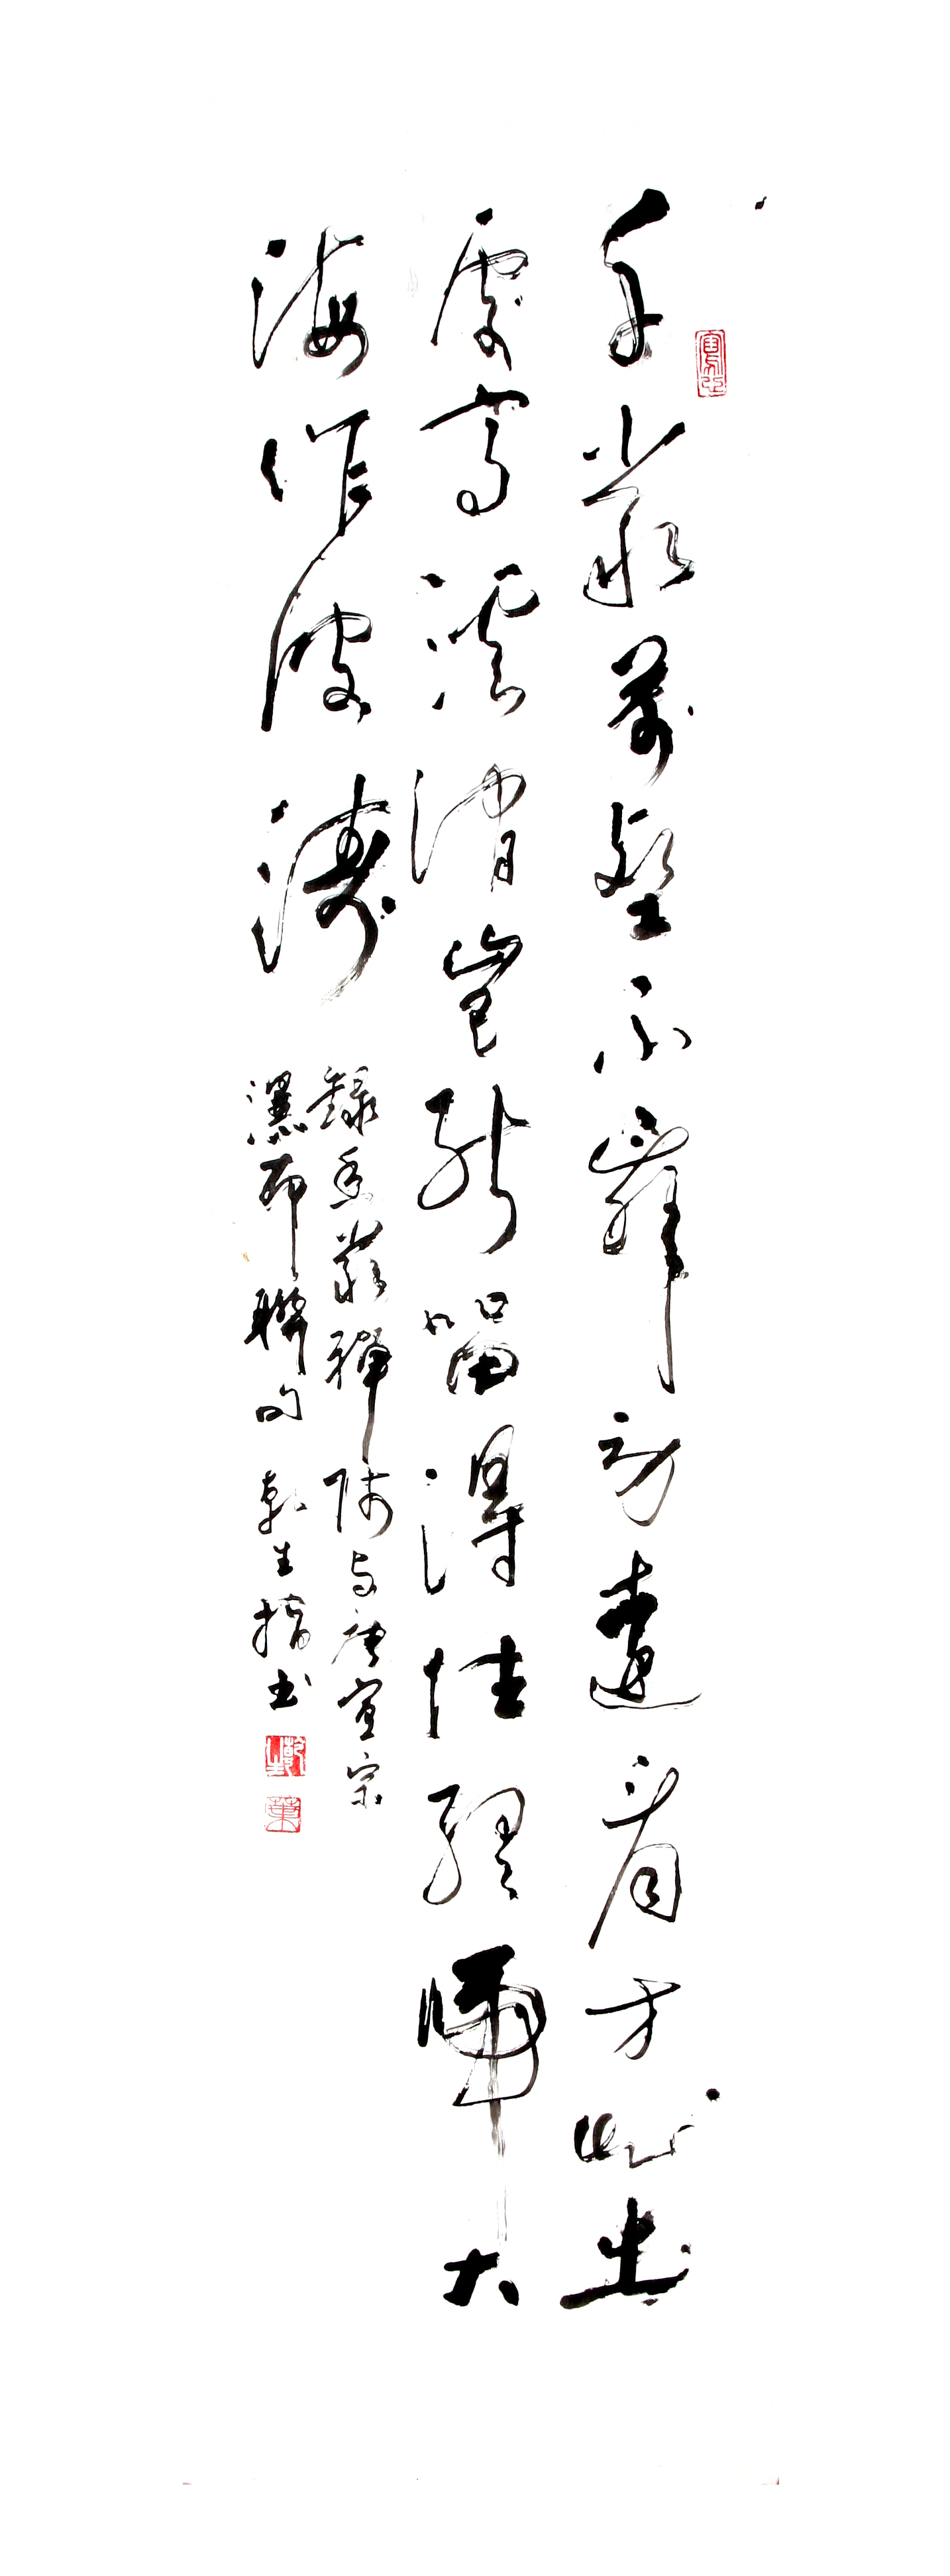 千巖萬壑不辭勞遠看方知出
處高溪澗豈能留得住終歸大
海作波濤
錄香嚴禪師与唐宣宗
瀑布聯句 乾生指書
乾生
葉